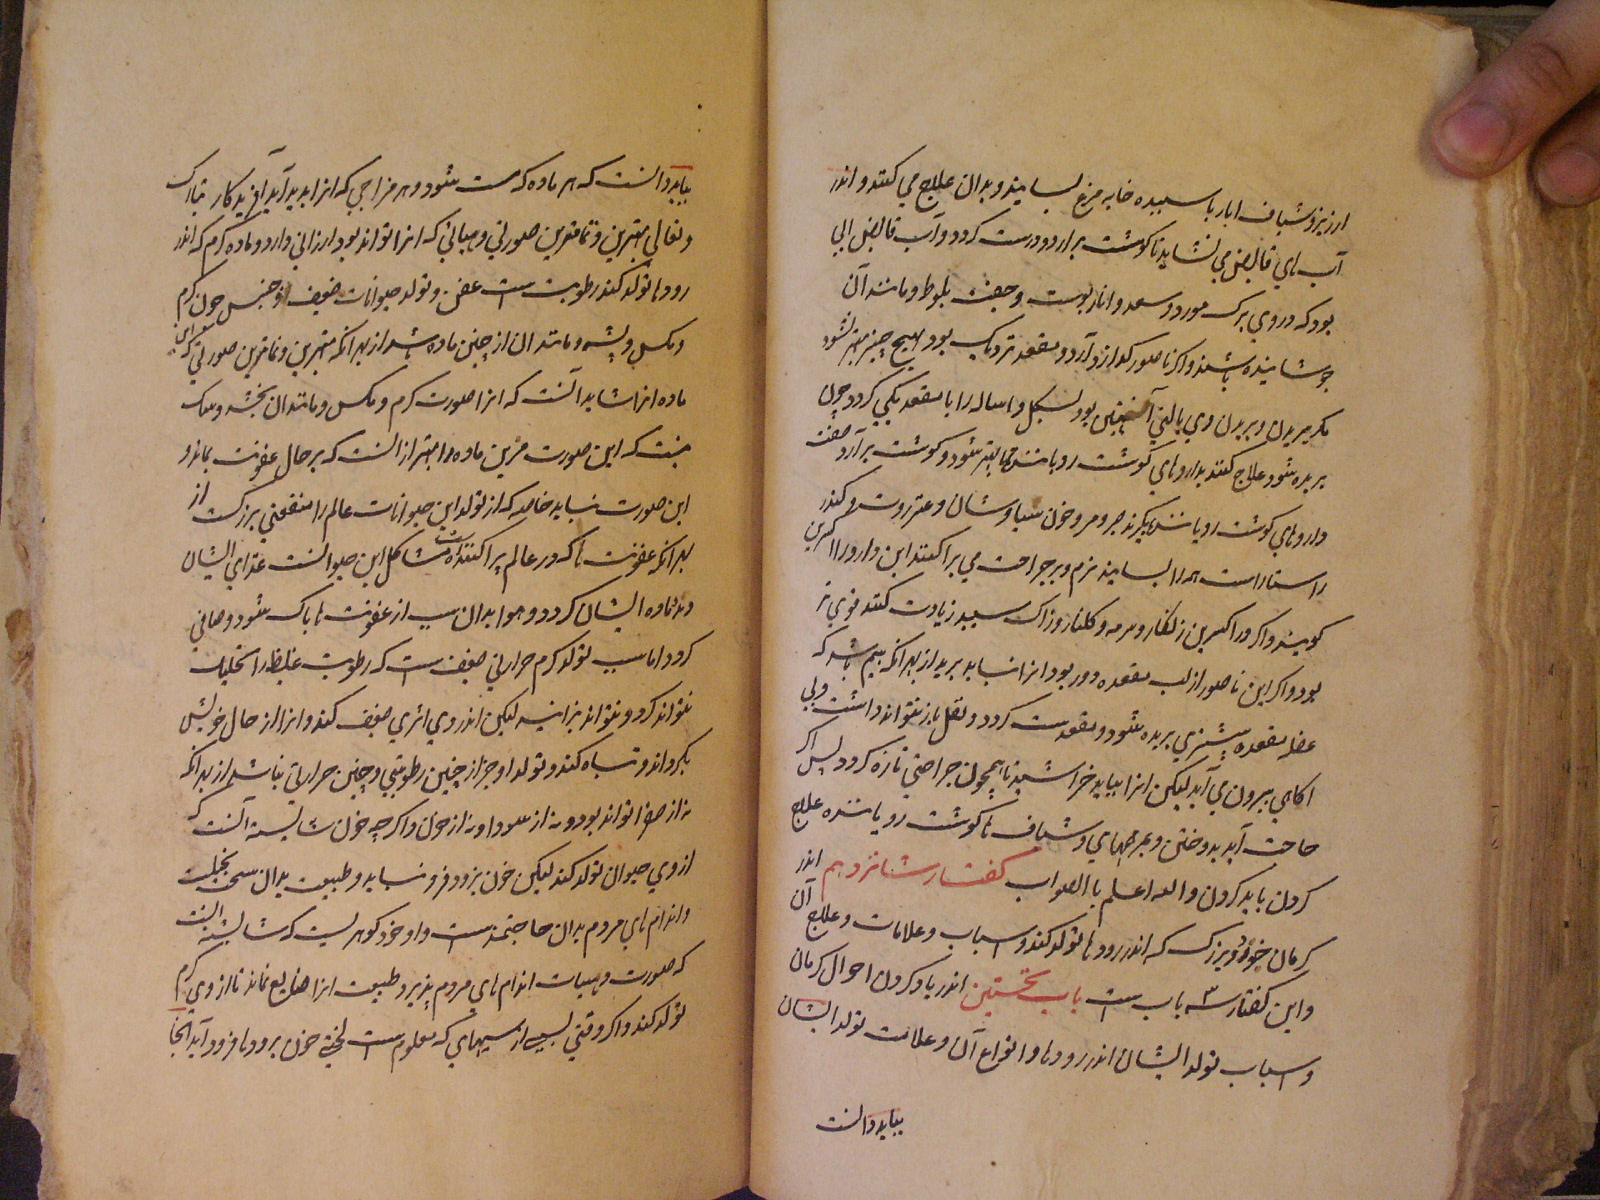 ارزیز و شیاف ابار با سپیده خایه مرغ بسایند و بدان علاج می کنند و اندر
آب های قابض می نشاید تا کوشت برارد و درست کردد و آب قابض ابی
بود که در وی برک مورد و سعد و انار پوست و جفت بلوط و مانند آن
جوشانیده باشند و اکر ناصور کذاره دارد و بمقعد نزدیک بود بهیچ چیز بهتر نشود
مکر ببریدن و بریدن وی بالتی آهنین بود بشکل و اماله را با مقعد یکی کردد چون
بریده شود علاج کنند بداروهای کوشت رویاننده تا بهتر شود و کوشت برآرد صفت
داروهای کوشت رویاننده بکیرند صبر و مر و خون سیاوشان و عنزروت و کندر
راستاراست همه را بسایند نرم و بر جراحت می پراکنند این دارو را اکسرین
کویند و اکر در اکسرین زنکار و سرمه و کلنار و زاک سپید زیادت کنند قوی تر
بود و اکر این ناصور از لب مقعده دور بود انرا نباید برید از بهر انکه بیم باشد که
عضله مقعده بیشتری بریده شود و مقعد سست کردد و ثفل باز نتواند داشت و بی
اکاهی بیرون می آید لیکن انرا بباید خراشید تا همچون جراحتی تازه کردد پس اکر
حاجت آید بدوختن و بمرهمهای و شیاف تا کوشت رویاننده علاج
کردن باید کردن والله اعلم باالصواب کفتار شانزدهم اندر
کرمان خورد و بزرک که اندر رودها تولد کند و اسباب و علامات و علاج آن
و این کفتار سه باب است باب نخستین اندر یاد کردن احوال کرمان
و اسباب تولد ایشان اندر رودها و انواع آن و علامت تولد ایشان
بباید دانست
بباید دانست که هر ماده که هست شود و هر مزاجی که انرا پدید آید آفریدکار تبارک
و تعالی بهترین و تمامترین صورتی و هیاتی که انرا تواند بود ارزانی دارد و ماده کرم که اندر
رودها تولد کند رطوبت است عفن و تولد حیوانات ضعیف و خسیس چون کرم
و مکس و پشه و مانند ان از چنین ماده باشد از بهر انکه بهترین و تمامترین صورتی که این
ماده انرا شاید آنست که انرا صورت کرم و مکس و مانند ان بخشد و شک
نیست که این صورت مرین ماده را بهتر از انست که بر حال عفونت بماند و
این صورت نیابد خاصه که از تولد این حیوانات عالم را منفعتی بزرکست از
بهر انکه عفونت ها که در عالم پراکنده است مشاکل این حیوانست غذای ایشان
و ماده ایشان کردد و هوا بدان سبب از عفونت ها پاک شود و صافی
کردد اما سبب تولد کرم حرارتی ضعیف است که رطوبت غلیظ را تحلیل
نتواند کرد و نتواند پزانید لیکن اندر وی اثری ضعیف کند و انرا از حال خویش
بکرداند و تباه کند و تولد او جز از چنین رطوبتی و چنین حرارتی نباشد از بهر انکه
نه از صفرا تواند بود و نه از سودا و نه از خون و اکر چه خون شایسته آنست که
از وی حیوان تولد کند لیکن خون بروده فرو نیاید و طبیعت بدان سخت بخیلست
و اندام های مردم بدان حاجتمندست و او خود کوهریست که شایسته آنست
که صورت و هیات اندام های مردم پذیرد طبیعت انرا ضایع نماند تا از وی کرم
تولد کند و اکر وقتی بسببی از سببهای که معلوم است لختی خون برودها فرود آید آنجا